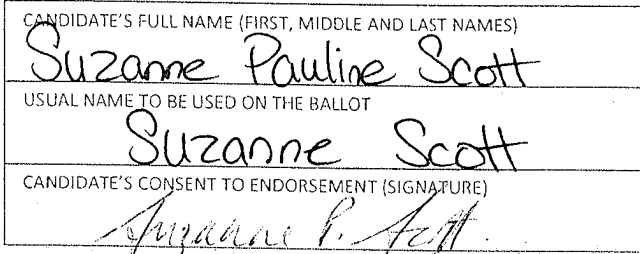 CANDIDATE'S FULL NAME (FIRST, MIDDLE AND LAST NAMES)
Suzanne Pauline Scott
USUAL NAME TO BE USED ON THE BALLOT
Suzanne Scott
CANDIDATE'S CONSENT TO ENDORSEMENT (SIGNATURE)
Suzanne P. Scott